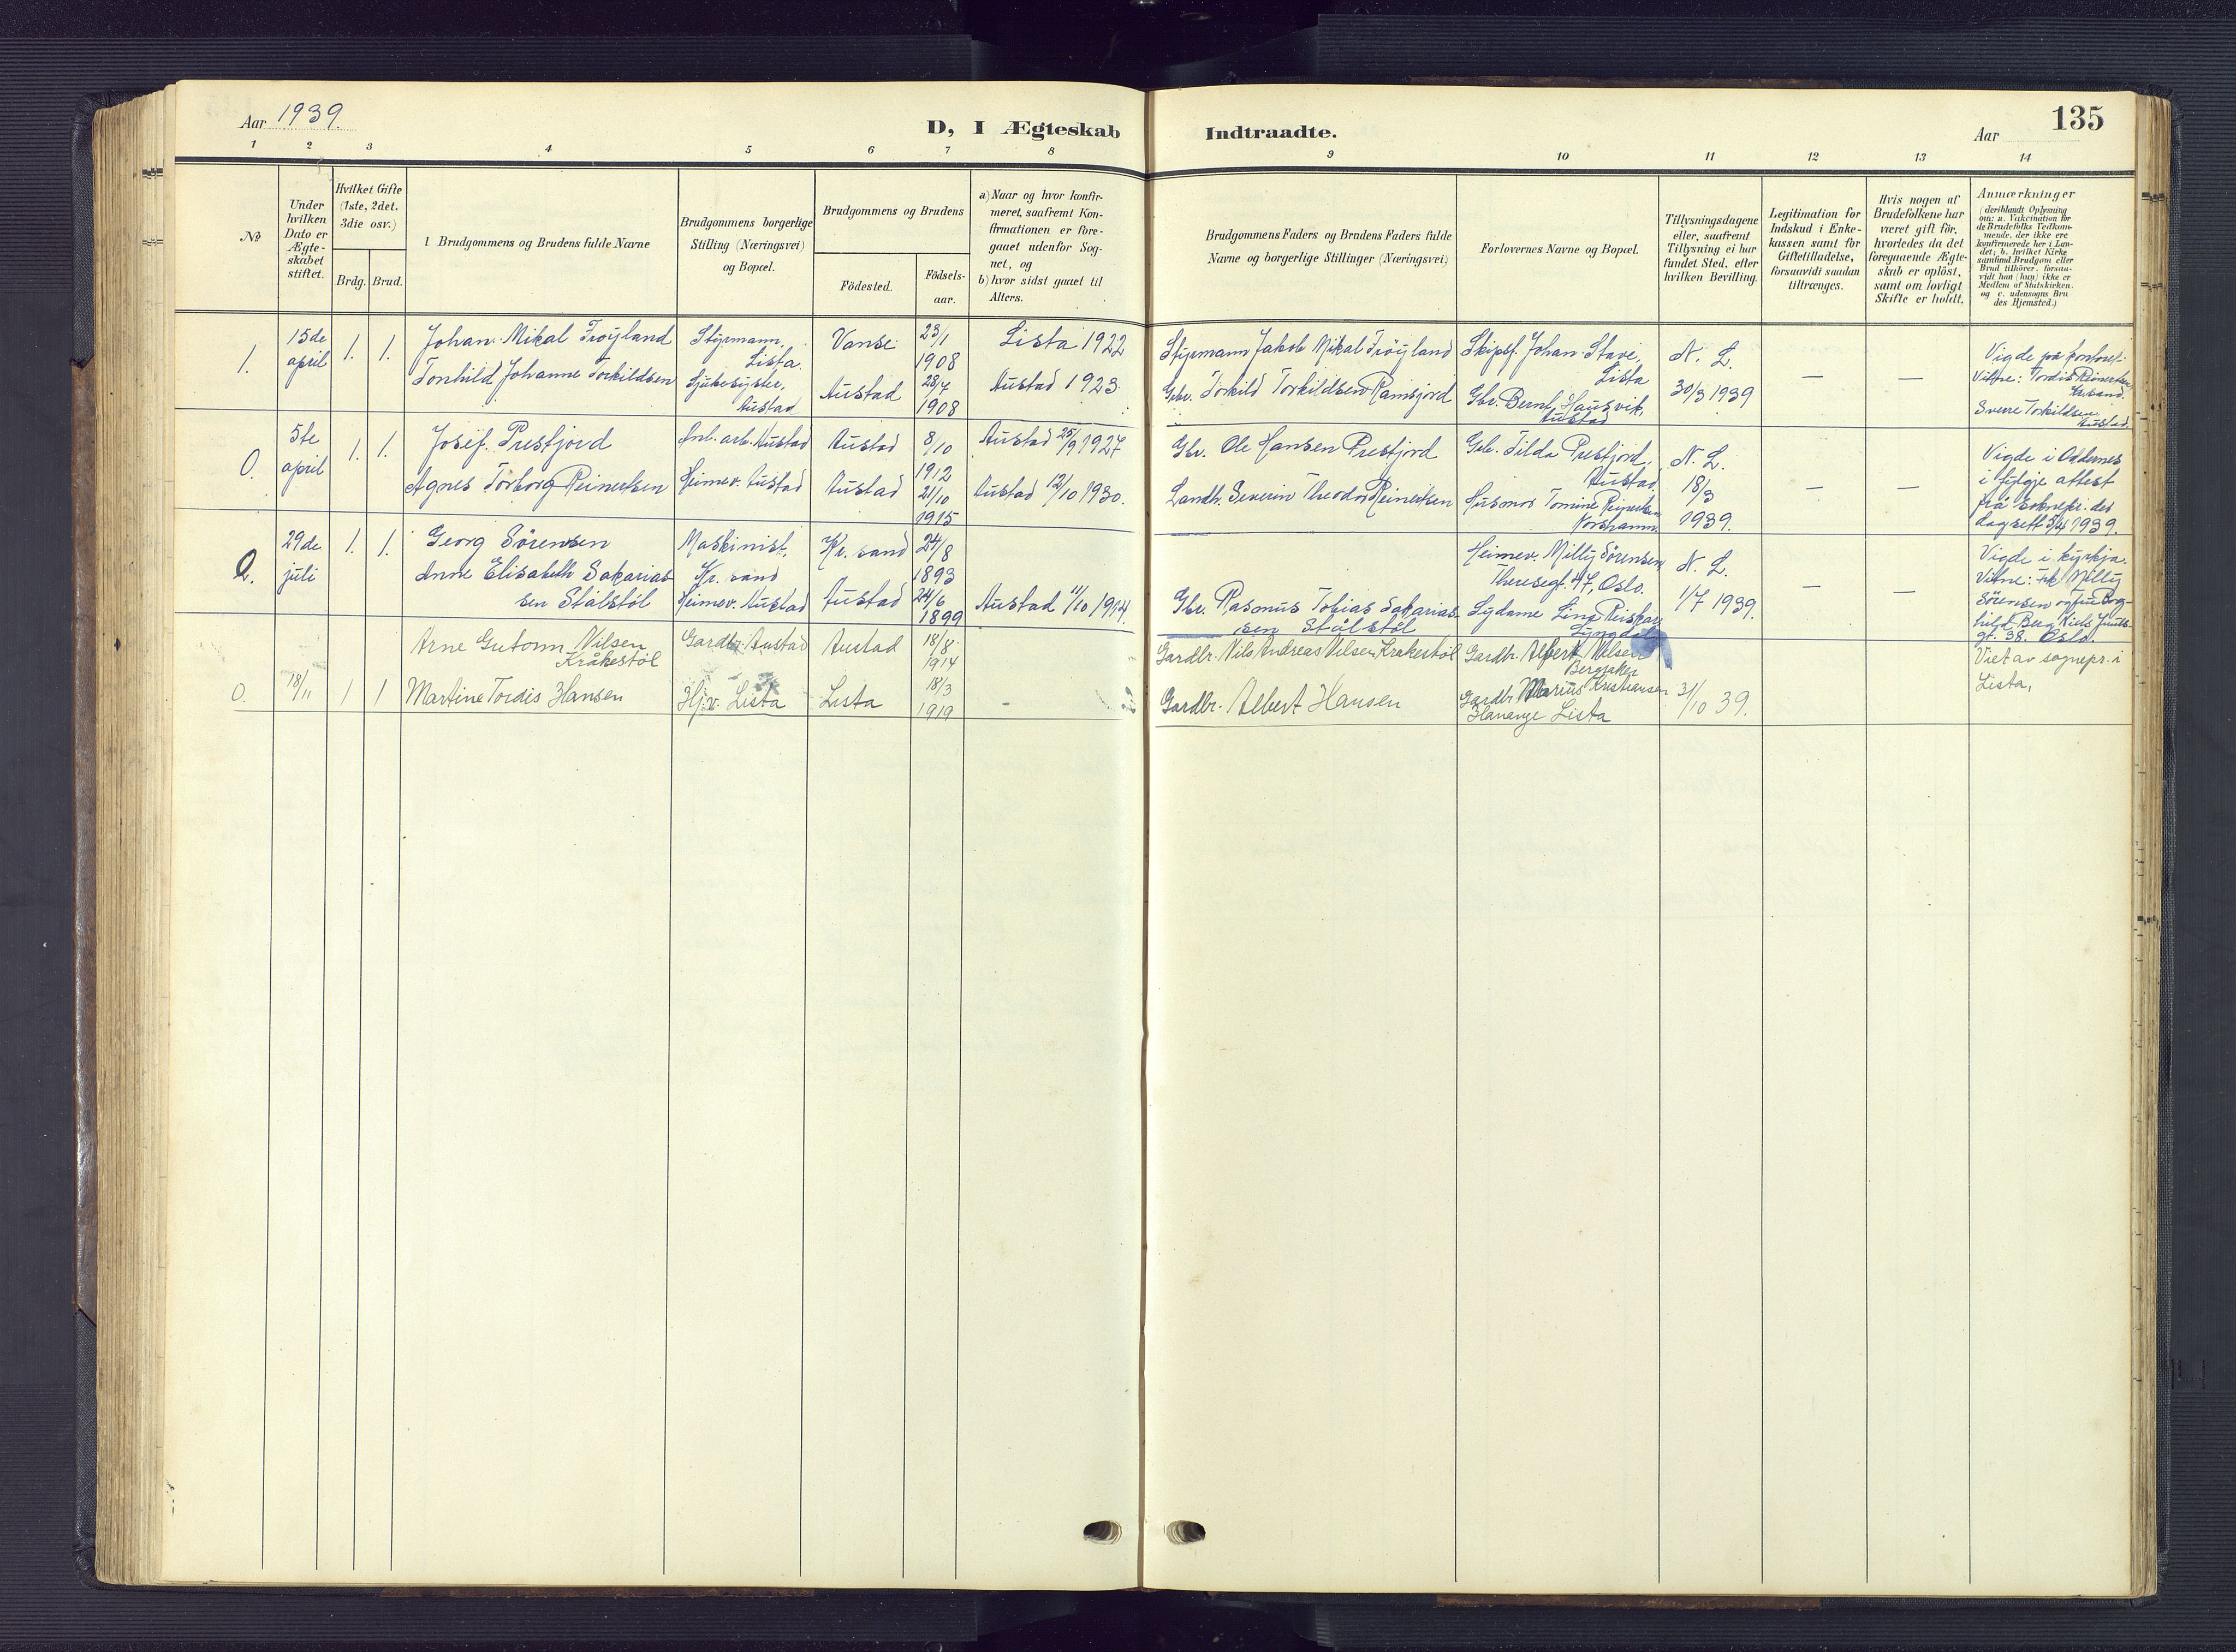 Aar 1939.
D, I Ægteskab Indtraadte.
Aar 135
1 2 3 4 5 6 7 8 9 10 11 12 13 14
No
Under hvilken Dato er Ægteskabet stiftet.
Hvilket Gifte (1ste, 2det, 3die osv.)
Brdg. Brud.
1 Brudgommens og Brudens fulde Navne
Brudgommens borgerlige Stilling (Næringsvei) og Bopæl.
Brudgommens og Brudens
Födested.
Födselsaar.
a) Naar og hvor konfirmeret, saafremt Konfirmationen er foregaaet udenfor Sognet, og
b) hvor sidst gaaet til Alters.
Brudgommens Faders og Brudens Faders fulde Navne og borgerlige Stillinger (Næringsvei)
Forlovernes Navne og Bopæl.
Tillysningsdagene eller, saafremt Tillysning ei har fundet Sted, efter hvilken Bevilling.
Legitimation for Indskud i Enkekassen samt for Giftetilladelse, forsaavidt saadan tiltrænges.
Hvis nogen af Brudefolkene har været gift för, hvorledes da det foregaaende Ægteskab er oplöst, samt om lovligt Skifte er holdt.
Anmærkninger (deriblandt Oplysning om: a. Vakcination for de Brudefolks Vedkommende, der ikke ere konfirmerede her i Landet; b. hvilket Kirkesamfund Brudgom eller Brud tilhörer, forsaavidt han (hun) ikke er Medlem af Statskirken, og c. udensogns Brudes Hjemsted.)
1. 15de april 1. 1. Johan Mikal Tröyland Styrmann, Lista. Vanse 23/1 1908 Lista 1922 Styrmann Jakob Mikal Tröyland Skipsf. Johan Stave, Lista N. L. 30/3 1939 — — Vigde på kontoret.
Torhild Johanne Torkildsen Sjukesyster, Austad Austad 28/4 1908 Austad 1923 Gbr. Torkild Torkildsen Ramsfjord Gbr. Bernt Hausvik, Austad Vitne: Tordis Reinertsen, Krisand. Sverre Torkildsen Austad
0. 5te april 1. 1. Josef Prestfjord Anl. arb. Austad Austad 8/10 1912 Austad 25/9 1927 Gbr. Ole Hansen Prestfjord Gbr. Tilda Prestfjord, Austad N. L. 18/3 1939. — — Vigde i Oddernes i fylgje attest frå soknepr. der dagsett 5/4 1939.
Agnes Torborg Reinertsen Heimev. Austad Austad 21/10 1915 Austad 12/10 1930. Landh. Severin Theodor Reinertsen Husmor Tomine Reinertsen Korshamn
2. 29de juli 1. 1. Georg Sörensen Maskinist, Kr. sand Kr. sand 24/8 1893 Heimev. Milly Sörensen, Theresegt. 47, Oslo. N. L. 1/7 1939. — — Vigde i kyrkja. Vitne: Milly Sörensen og fru Borghild Berg Niels Juuls gt. 38. Oslo.
Anne Elisabeth Sakariassen Stålstöl Heimev. Austad Austad 24/6 1899 Austad 11/10 1914. Gbr. Rasmus Tobias Sakariassen Stålstöl Lydame Lina Lyngdal
0. 18/11 1 1 Arne Gutorm Nilsen Kråkestöl Gardbr. Austad Austad 18/8 1914 Gardbr. Nils Andreas Nilsen Kråkestöl Gardbr. Albert Nilsen Bergsaker 31/10 39. Viet av sognepr. i Lista,
Martine Tordis Hansen Hj.v. Lista Lista 18/3 1919 - Gardbr. Albert Hansen Gardbr. Marius Kristiansen Hananger Lista